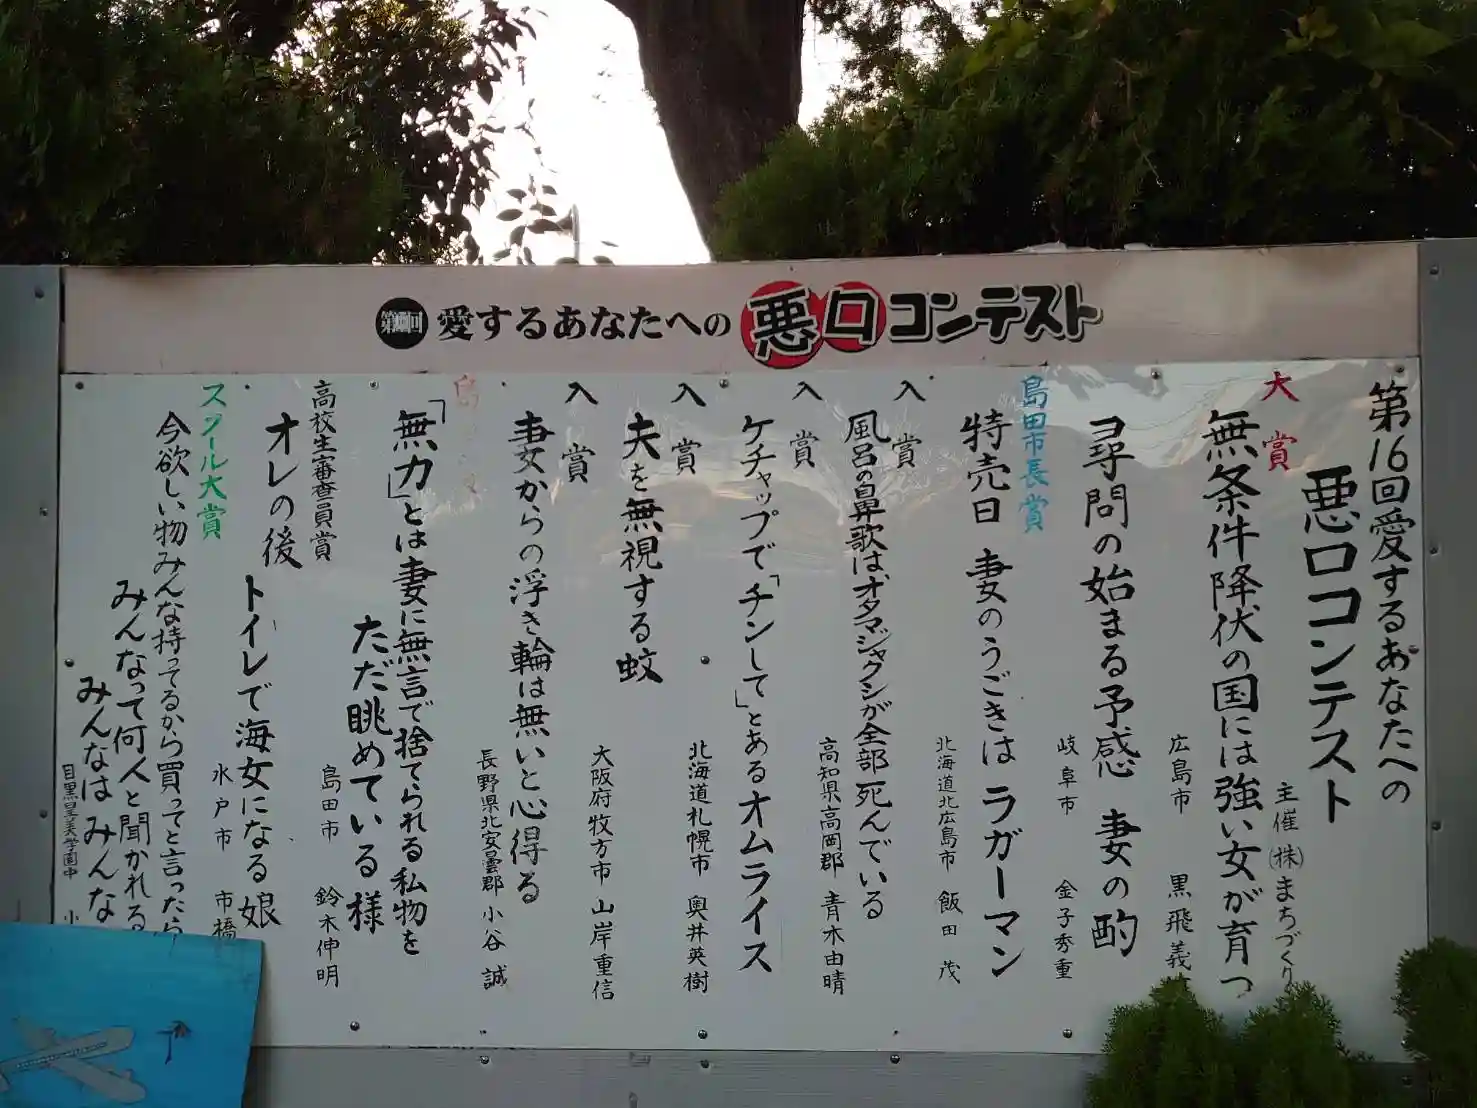 愛するあなたへの悪口コンテスト
第16回愛するあなたへの
悪口コンテスト
主催(株)まちづくり
大賞
無条件降伏の国には強い女が育つ
広島市 黒飛義
尋問の始まる予感 妻の酌
岐阜市 金子秀重
島田市長賞
特売日 妻のうごきはラガーマン
北海道北広島市 飯田 茂
入賞
風呂の鼻歌はオタマジャクシが全部死んでいる
高知県高岡郡 青木由晴
入賞
ケチャップで「チンして」とあるオムライス
北海道札幌市 奥井英樹
入賞
夫を無視する蚊
大阪府枚方市 山岸重信
入賞
妻からの浮き輪は無いと心得る
長野県北安曇郡 小谷 誠
島
「無力」とは妻に無言で捨てられる私物を
ただ眺めている様
島田市 鈴木伸明
高校生審査員賞
オレの後
トイレで海女になる娘
水戸市 市橋
スクール大賞
今欲しい物みんな持ってるから買ってと言ったら
みんなって何人と聞かれる
みんなはみんな
目黒星美学園中 小